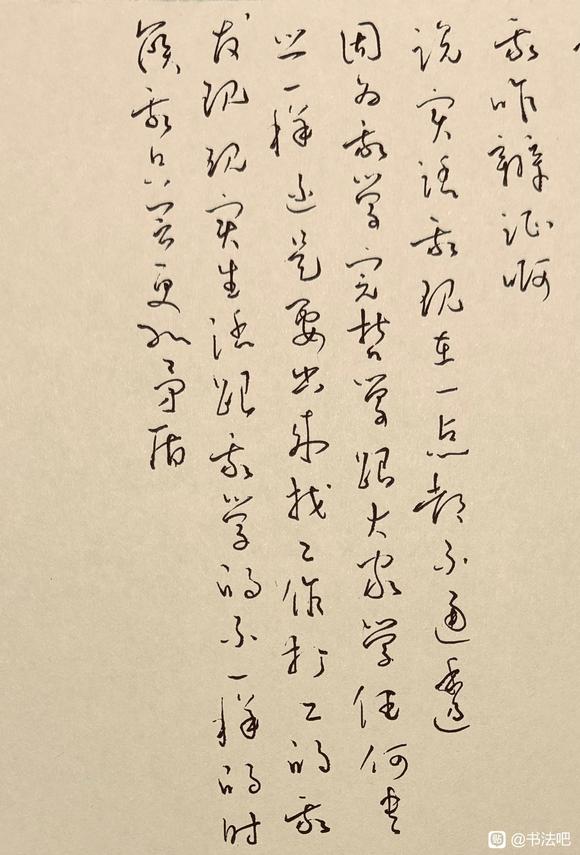 我咋辩证啊
说实话我现在一点都不通透
因为我学完哲学跟大家学任何专
业一样还是要出来找工作打工的我
发现现实生活跟我学的不一样的时
候我只会更加矛盾
贴 @书法吧